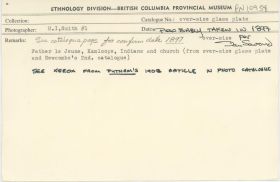 ETHNOLOGY DIVISION—BRITISH COLUMBIA PROVINCIAL MUSEUM PN10958
Collection: Catalogue No.: over-size glass plate
Photographer: H.I.Smith #1 Date: PROBABLY TAKEN IN 1897
Remarks: See catalogue page for confirm date 1897. over-size per
Father le Jeune, Kamloops, Indians and church (from over-size glass plate
and Newcombe's 2nd. catalogue)
SEE XEROX FROM PUTNAM'S 1908 ARTICLE IN PHOTO CATALOGUE